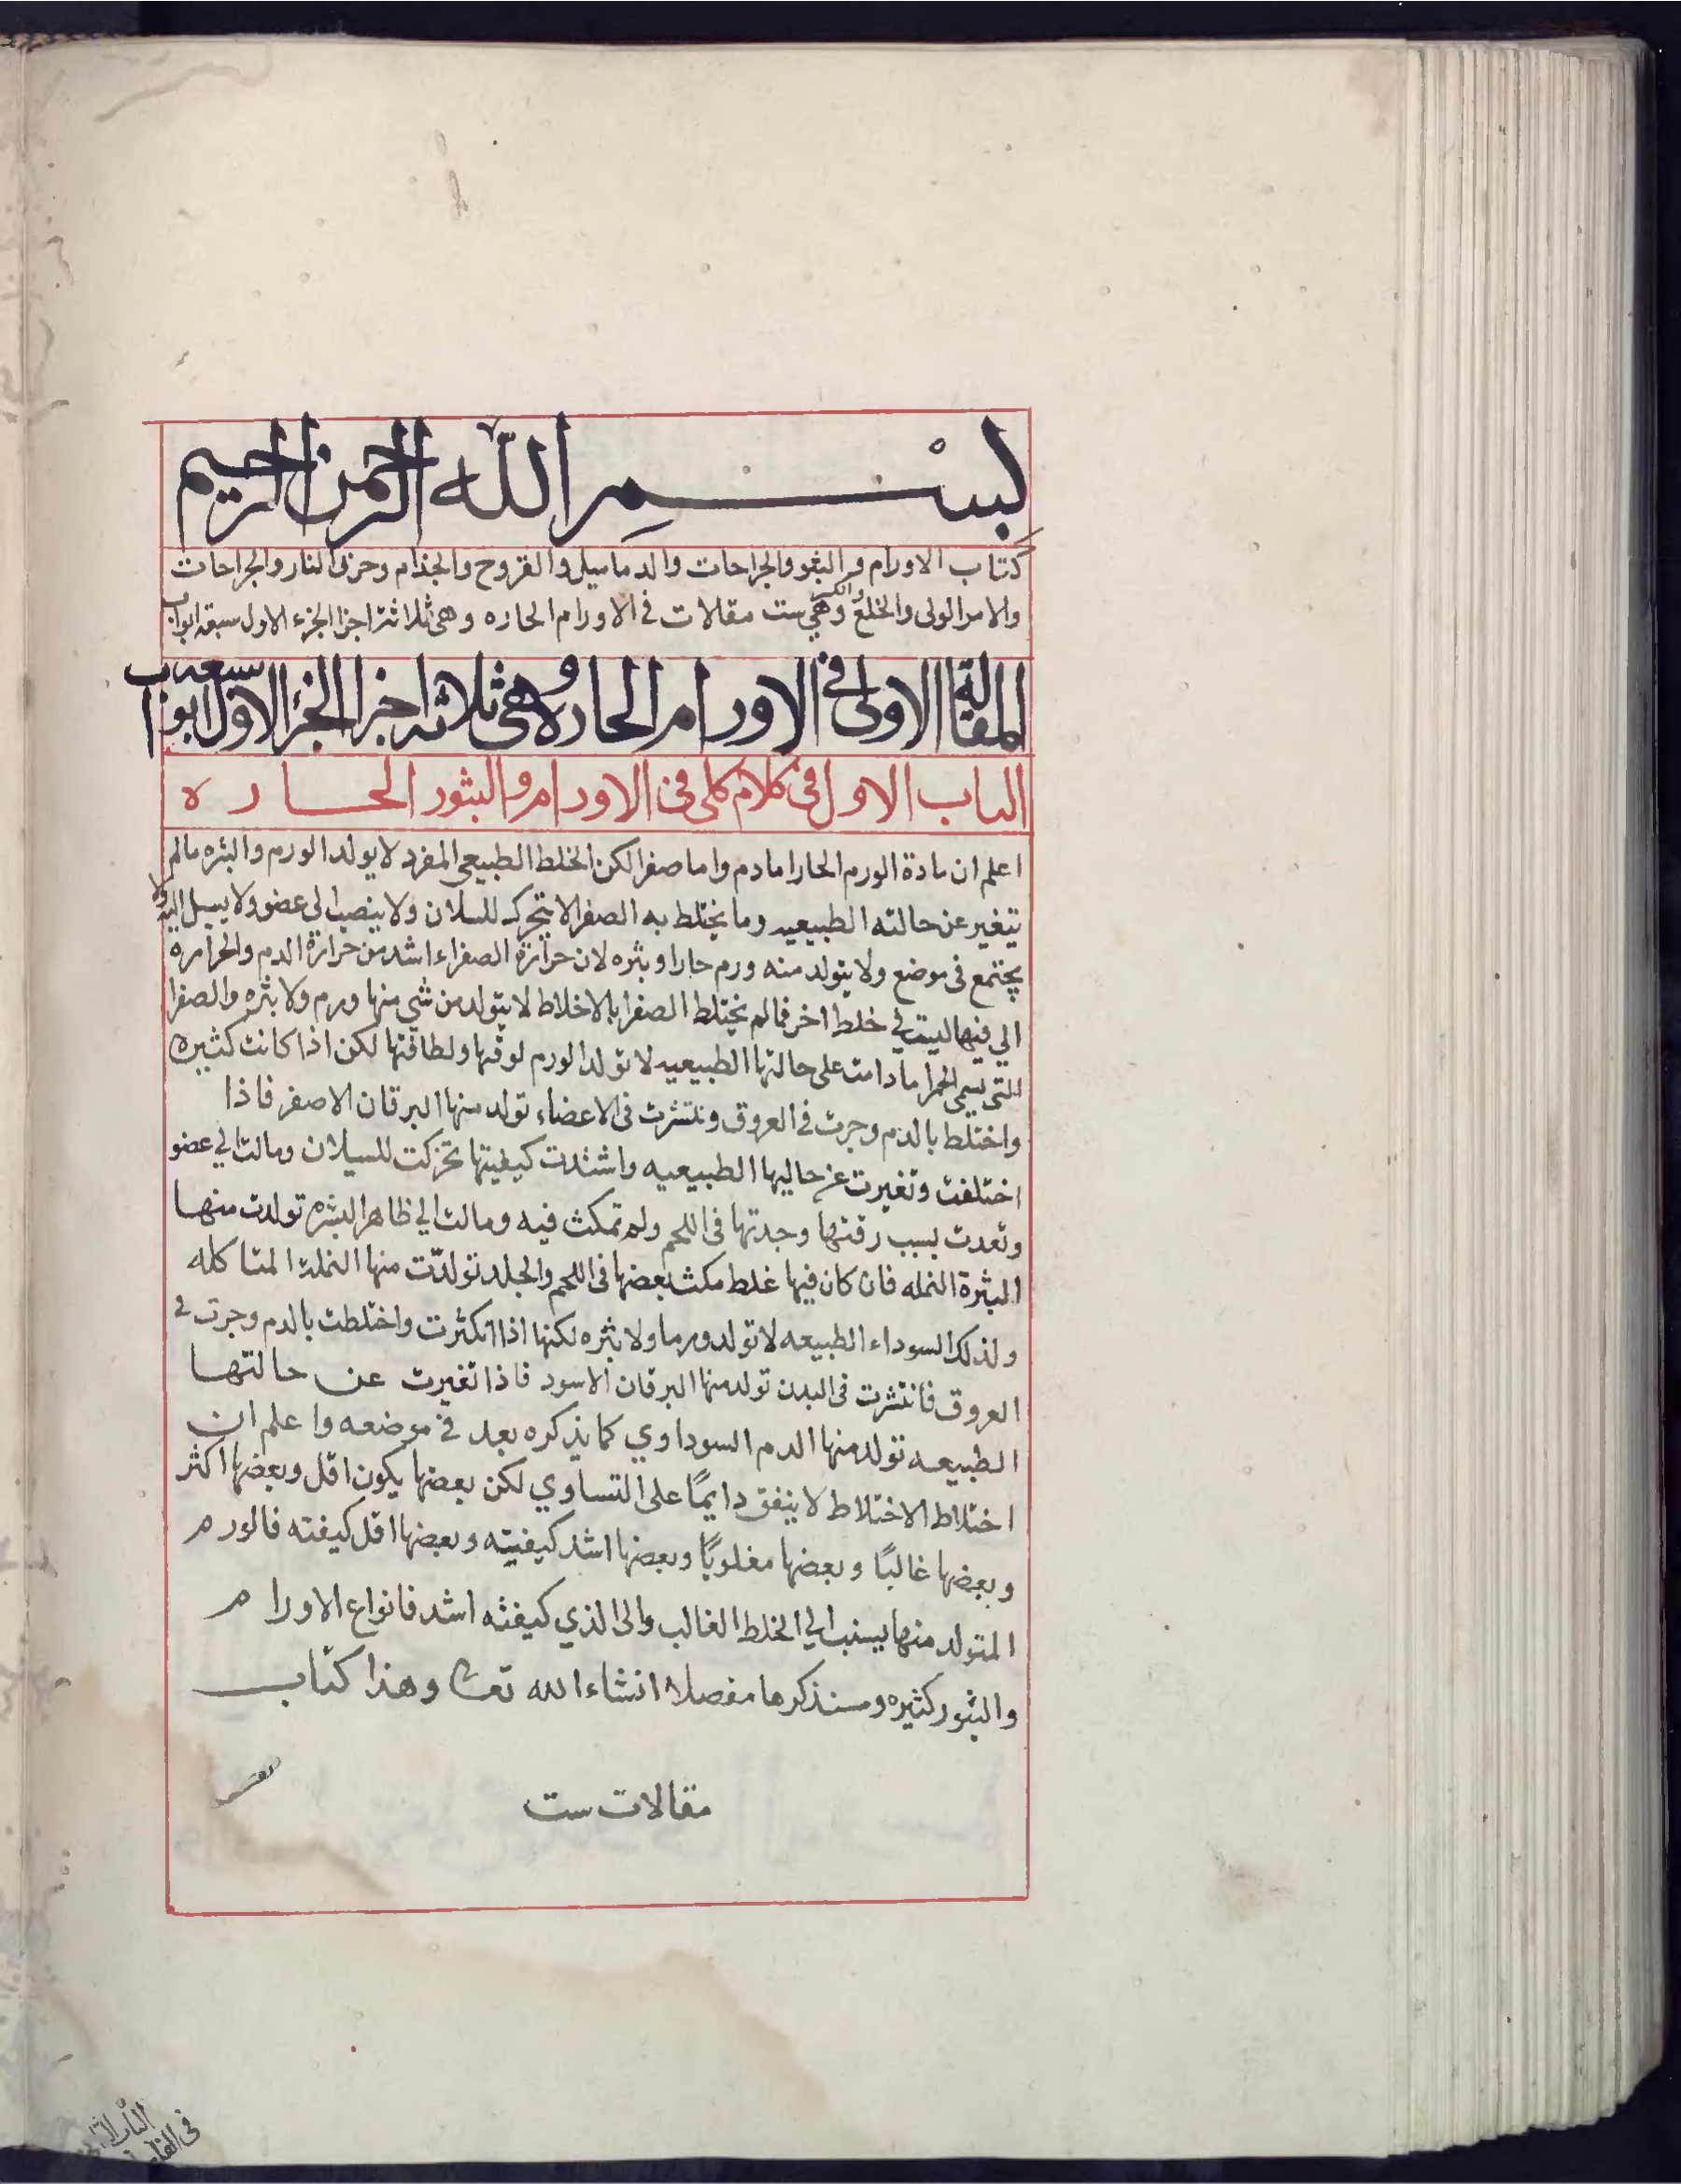 بسم الله الرحمن الرحيم
كتاب الاورام و البثور والجراحات والدماميل والقروح والجذام وحرق النار والجراحات
والخلع والكسر وهي ست مقالات في الاورام الحاره وهي ثلاثة اجزا الجزء الاول سبعة ابواب
المقالة الاولى في الاورام الحاره وهي ثلاثه اجزا الجزء الاول سبعه ابواب
الباب الاول في كلام كلى فى الاورام و البثور الحاره
اعلم ان مادة الورم الحار اما دم واما صفرا لكن الخلط الطبيعي المفرد لا يولد الورم والبثره مالم
يتغير عن حالته الطبيعيه وما يختلط به الصفرا لا يتحرك للسلان ولا ينصب الى عضو ولا يسيل اليه ولا
يجتمع فى موضع ولا يتولد منه ورم حار او بثره لان حرارة الصفراء اشد من حرارة الدم والحراره
الي فيها ليست في خلط اخر فمالم يختلط الصفرا بالاخلاط لا يتولد من شي منها ورم ولا بثره والصفرا
التى يسمى الحمرا مادامت على حالتها الطبيعيه لا تولد الورم لرقتها ولطافتها لكن اذا كانت كثيره
واختلط بالدم وجرت في العروق وننتشرت فى الاعضاء تولد منها اليرقان الاصفر فاذا
اختلفت وتغيرت عن حاليها الطبيعيه واشتدت كيفيتها تحركت للسيلان ومالت الي عضو
وتعدت بسبب رقتها وحدتها فى اللحم ولم تمكث فيه ومالت الي ظاهر البشره تولدت منها
البثرة النمله فان كان فيها غلط مكث بعضها فى اللحم والجلد تولدت منها النملة المتاكله
ولذلك السوداء الطبيعه لا تولد ورما ولا بثره لكنها اذا اكثرت واختلطت بالدم وجرت في
العروق فانتشرت فى البدن تولد منها اليرقان الاسود فاذا تغيرت عن حالتها
الطبيعه تولد منها الدم السوداوي كما يذكره بعد في موضعه واعلم ان
اختلاط الاختلاط لا يتفق دايمًا على التساوي لكن بعضها يكون اقل وبعضها اكثر
وبعضها غالبًا وبعضها مغلوبًا وبعضها اشد كيفيته وبعضها اقل كيفته فالورم
المتولد منها يسنب الي الخلط الغالب والى الذي كيفته اشد فانواع الاورام
والبثور كثيره وسنذكرها مفصلا انشاء الله تعا وهذا كتاب
مقالات ست